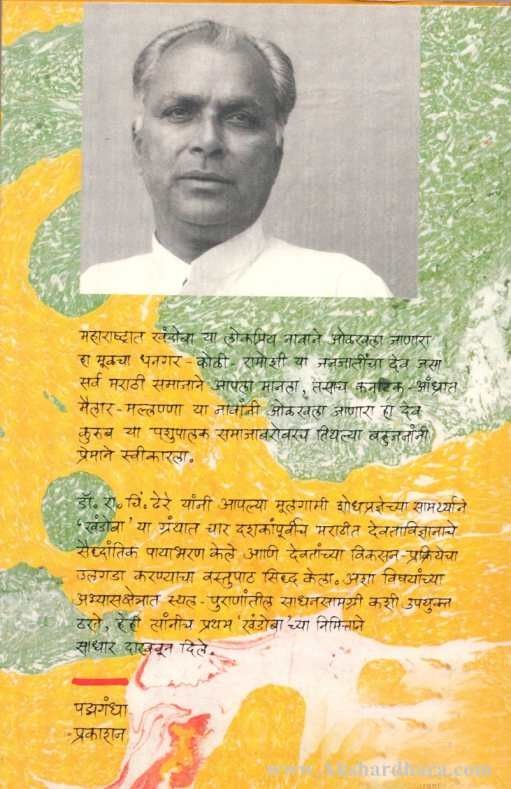 महाराष्ट्रात खंडोबा या लोकप्रिय नावाने ओळखला जाणारा
हा मूळचा धनगर - कोळी - रामोशी या जनजातींचा देव जसा
सर्व मराठी समाजाने आपला मानला, तसाच कर्नाटक - आंध्रात
मैलार - मल्लण्णा या नावांनी ओळखला जाणारा हा देव
कुरुब या पशुपालक समाजाबरोबरच तिथल्या बहुजनांनी
प्रेमाने स्वीकारला.
डॉ. रा. चिं. ढेरे यांनी आपल्या मूलगामी शोधप्रज्ञेच्या सामर्थ्याने
'खंडोबा' या ग्रंथात चार दशकांपूर्वीच मराठीत देवताविज्ञानाचे
सैध्दांतिक पायाभरण केले आणि देवतांच्या विकसन-प्रक्रियेचा
उलगडा करण्याचा वस्तुपाठ सिध्द केला. अशा विषयांच्या
अभ्यासक्षेत्रात स्थल - पुराणांतील साधनसामग्री कशी उपयुक्त
ठरते, हेही त्यांनीच प्रथम 'खंडोबा' च्या निमित्ताने
साधार दाखवून दिले.
पद्मगंधा
प्रकाशन
www.Akshardhara.com